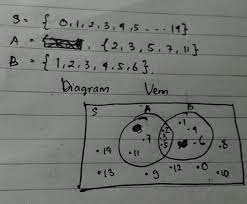 S = { 0,1,2,3,4,5 ... 14}
A = { 2,3,5,7,11}
B = {1,2,3,4,5,6}
Diagram Venn
S A B
.1
.2 .4 .8
.7 .3 .6
.14 .11 .5
.13 .9 .12 .0 .10